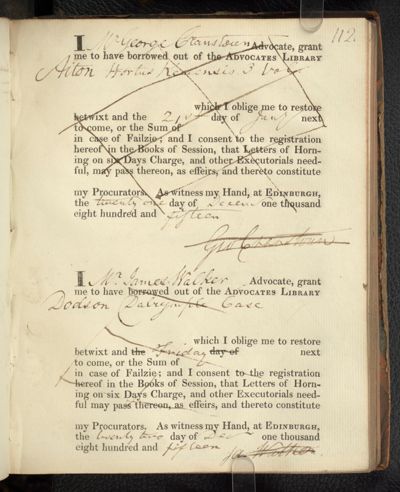 112.
I Mr George Cranstoun Advocate, grant
me to have borrowed out of the ADVOCATES LIBRARY
Aiton Hortus Kewensis 3 Vol
which I oblige me to restore
betwixt and the 21st day of Jany next
to come, or the Sum of
in case of Failzie; and I consent to the registration
hereof in the Books of Session, that Letters of Horn-
ing on six Days Charge, and other Executorials need-
ful, may pass thereon, as effeirs, and thereto constitute
my Procurators. As witness my Hand, at EDINBURGH,
the twenty one day of Decem one thousand
eight hundred and fifteen
Geo Cranstoun
I Mr James Walker Advocate, grant
me to have borrowed out of the ADVOCATES LIBRARY
Dodson Dalrymple Case
which I oblige me to restore
betwixt and the Friday day of next
to come, or the Sum of
in case of Failzie; and I consent to the registration
hereof in the Books of Session, that Letters of Horn-
ing on six Days Charge, and other Executorials need-
ful may pass thereon, as effeirs, and thereto constitute
my Procurators. As witness my Hand, at EDINBURGH,
the twenty two day of Dec one thousand
eight hundred and fifteen
Ja Walker